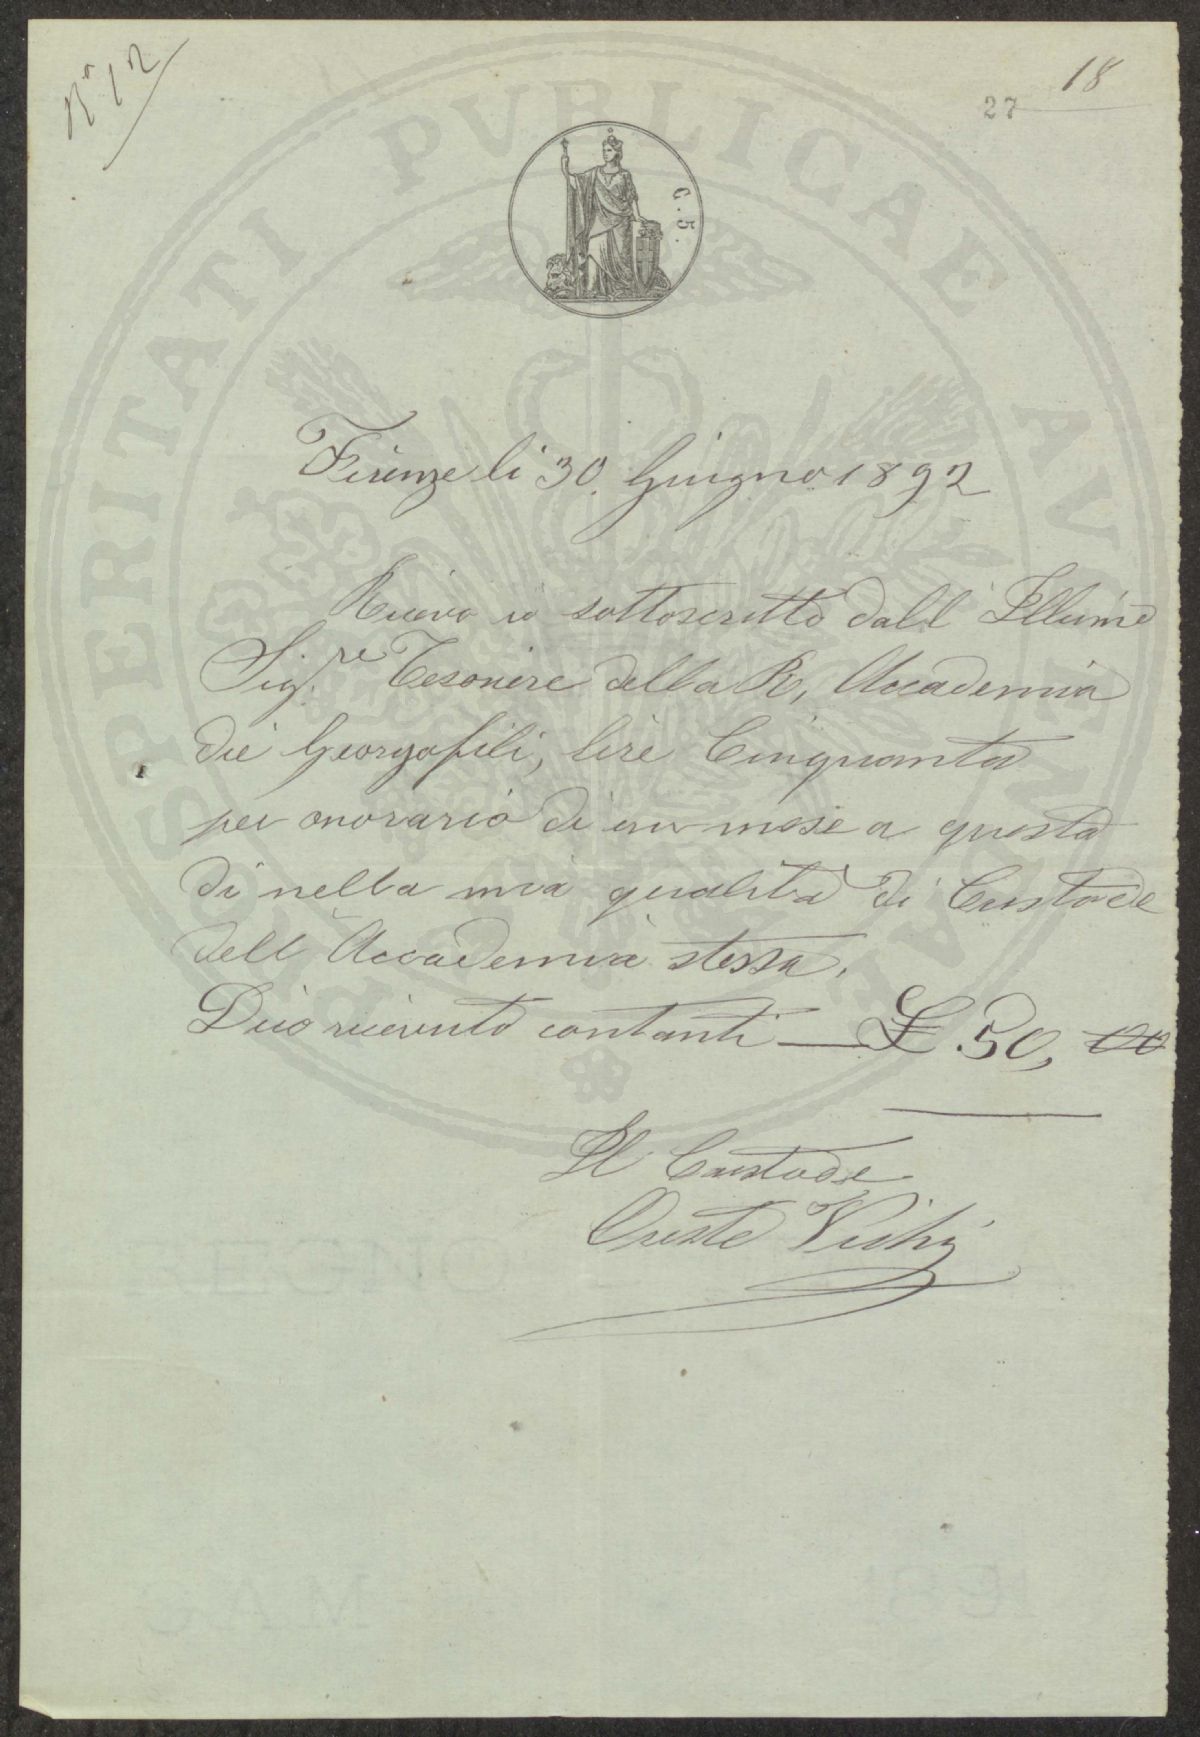 N° 12
18
27
C. 5.
PROSPERITATI PVBLICAE AVGENDAE
Firenze li 30 Giugno 1892
Ricevo io sottoscritto dall' Illumo
Sigre Tesoriere della R, Accademia
dei Georgofili, lire Cinquanta
per onorario di un mese a questo
dì nella mia qualità di Custode
dell' Accademia stessa.
Dico ricevuto contanti — £ .50, 00
Il Custode
Oreste Vichi